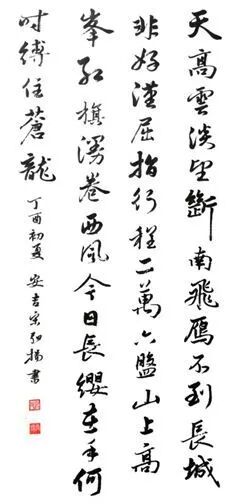 天高雲淡望斷南飛雁不到長城
非好漢屈指行程二萬六盤山上高
峯紅旗漫卷西風今日長纓在手何
时縛住蒼龍
丁酉初夏 安吉宋揚書